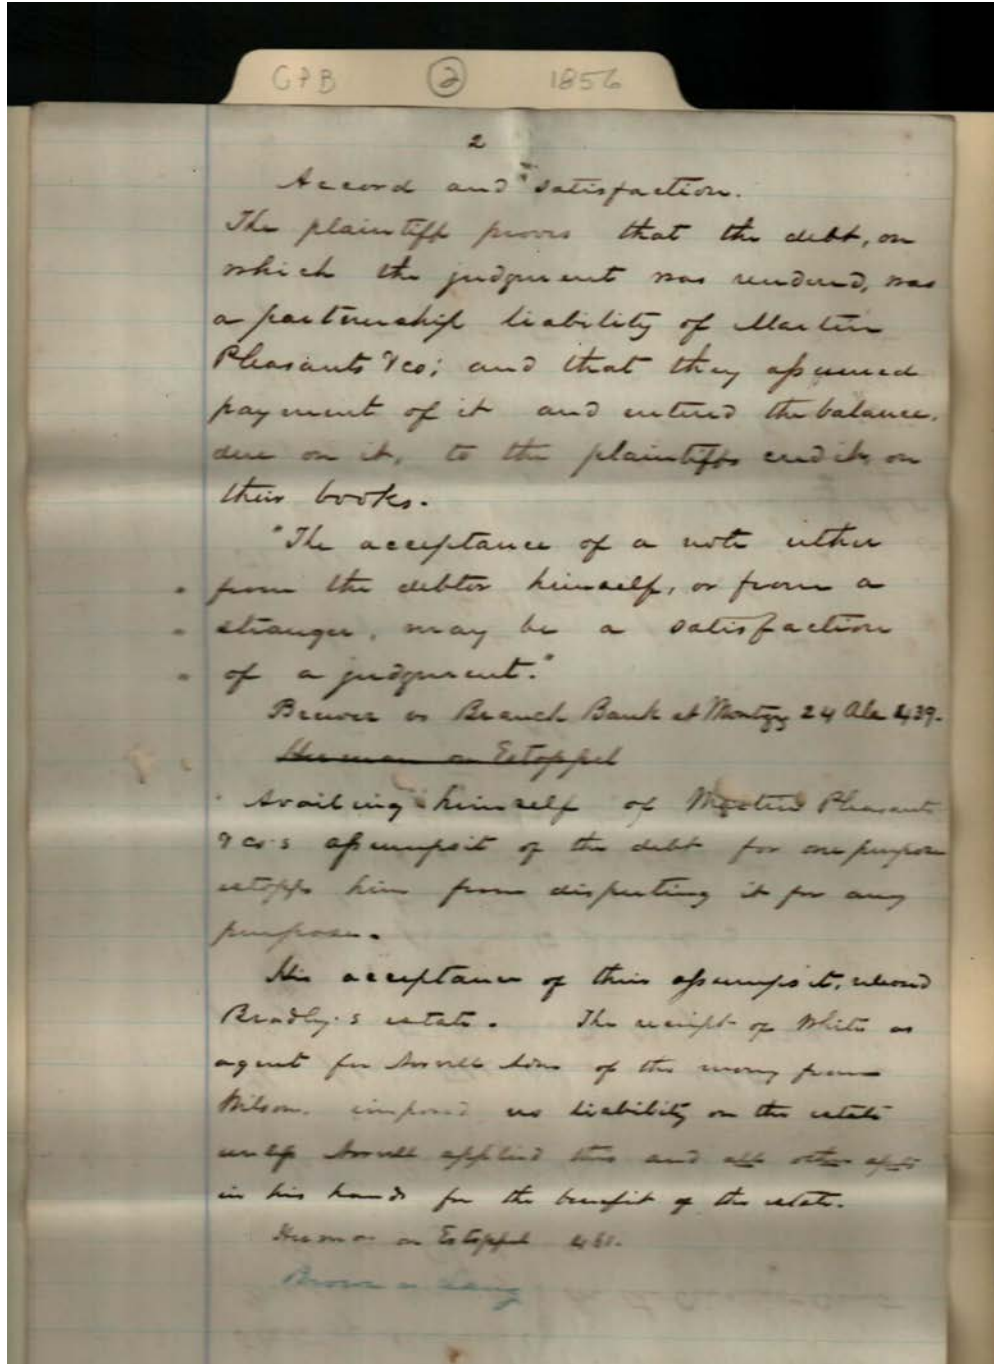 GPB 2 1856
2
Accord and satisfaction.
The plaintiff proves that the debt, on
which the judgment was rendered, was
a partnership liability of Martin
Pleasants & co; and that they assumed
payment of it and entered the balance.
due on it, to the plaintiffs credit, on
their books.
"The acceptance of a note either
from the debtor himself, or from a
stranger, may be a satisfaction
of a judgment."
Brewer vs Branch Bank at Montgy 24 Ala 439.
Herman on Estoppel
Availing himself of Martin Pleasants
& co's assumpsit of the debt for one purpose
estopps him from disputing it for any
purpose.
His acceptance of their assumpsit, released
Bradly's estate. The receipt of White as
agent for of the money from
Wilson. imposed no liability on the estate
unless applied this and all other assets
in his hands for the benefit of the estate.
Herman on Estoppel
Brown vs